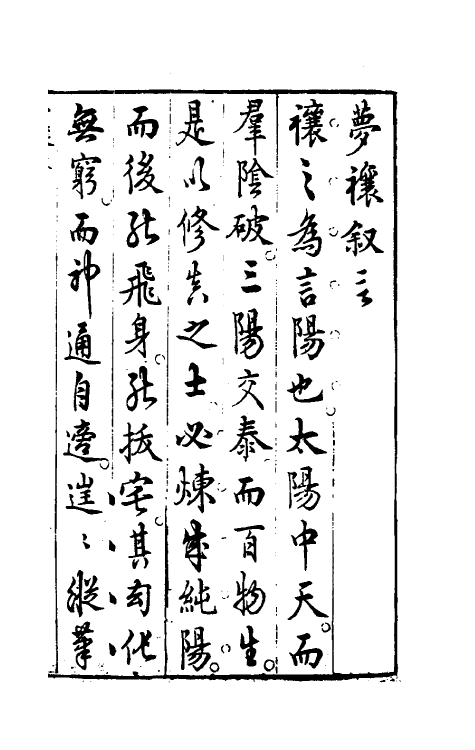 夢禳叙言
禳之為言陽也太陽中天而
羣陰破三陽交泰而百物生
是以修真之士必煉成純陽
而後能飛身能拔宅其幻化
無窮而神通自
縱筆